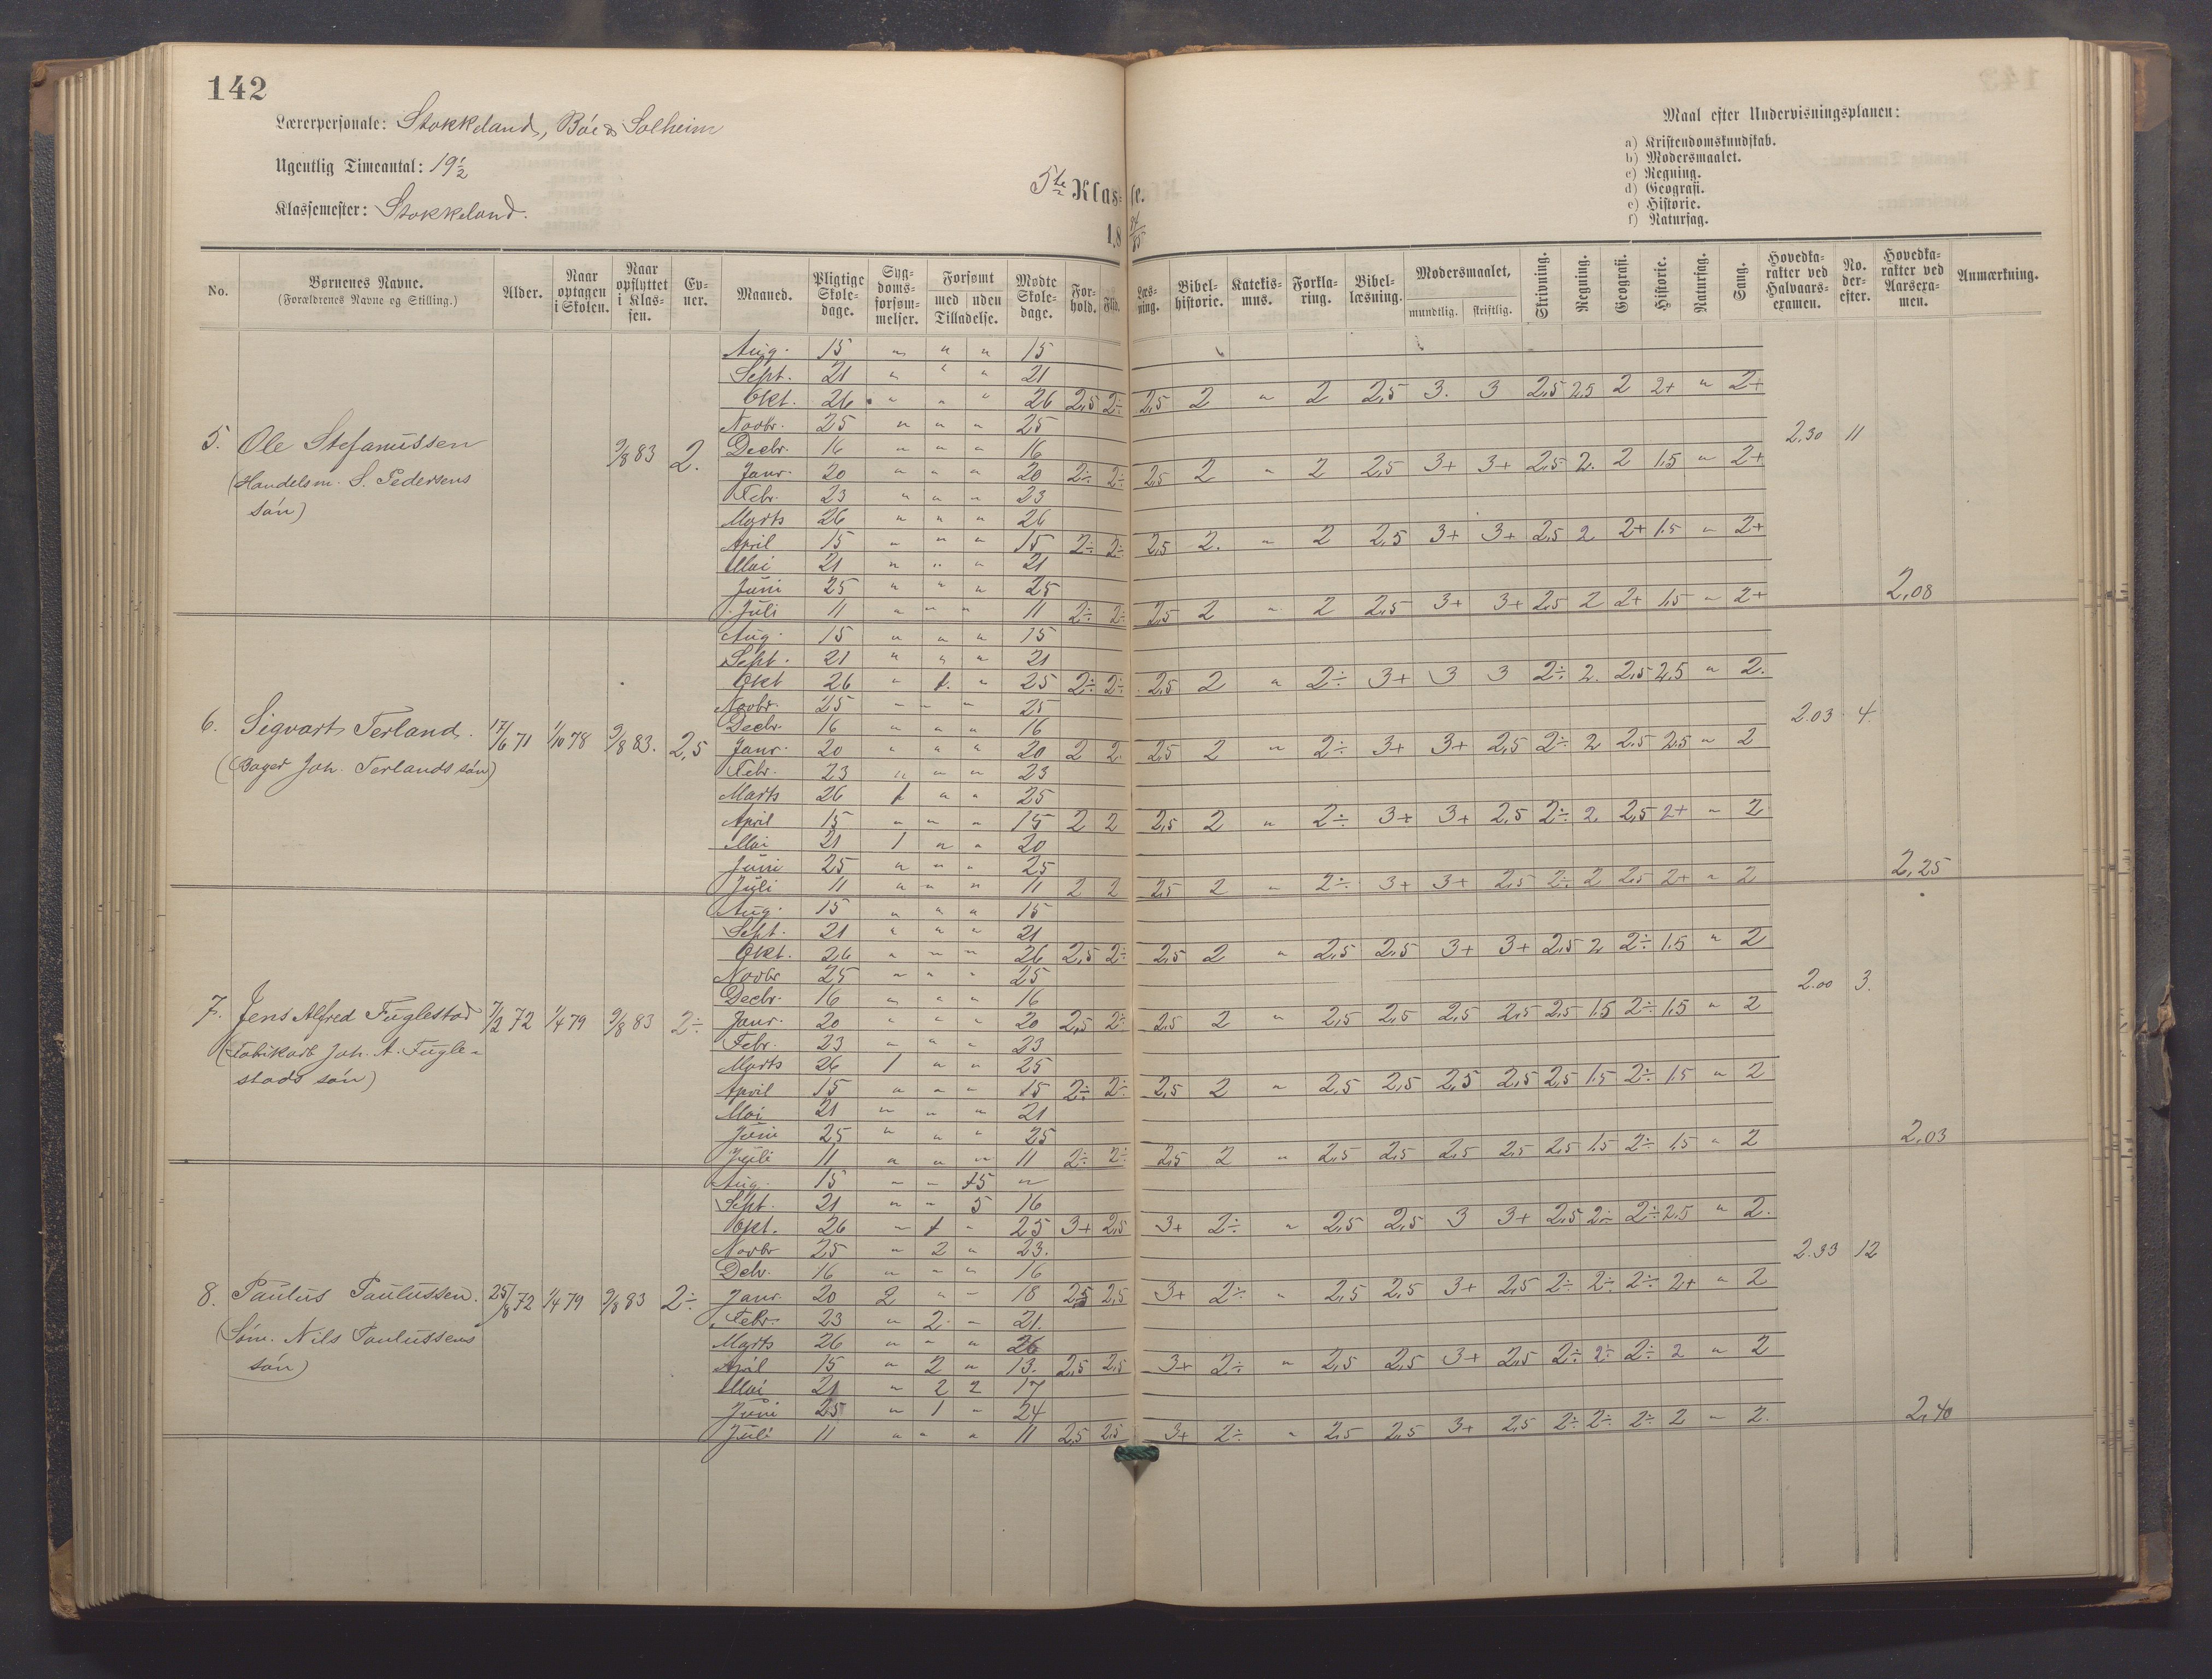 142
Lærerpersonale: Stokkeland, Bóe & Solheim
Ugentlig Timeantal: 19 1/2
Klassemester: Stokkeland.
5te Klasse.
18 84/85
Maal efter Undervisningsplanen:
a) Kristendomskundskab.
b) Modersmaalet.
c) Regning.
d) Geografi.
e) Historie.
f) Naturfag.
No. | Børnenes Navne. (Forældrenes Navne og Stilling.) | Alder. | Naar optagen i Skolen. | Naar opflyttet i Klassen. | Evner. | Maaned. | Pligtige Skoledage. | Sygdomsforsømmelser. | Forsømt med Tilladelse. | uden Tilladelse. | Mødte Skoledage. | Forhold. | Flid. | Læsning. | Bibelhistorie. | Katekismus. | Forklaring. | Bibellæsning. | Modersmaalet, mundtlig. | skriftlig. | Skrivning. | Regning. | Geografi. | Historie. | Naturfag. | Sang. | Hovedkarakter ved Halvaarsexamen. | No. derefter. | Hovedkarakter ved Aarsexamen. | Anmærkning.
5. Ole Stefanussen 9/8 83 2.
(Handelsm. S. Pedersens
són)
Aug. 15 " " " 15
Sept. 21 " " " 21
Okt. 26 " " " 26 2,5 2÷ 2,5 2 " 2 2,5 3. 3 2,5 2,5 2 2+ " 2+
Novbr. 25 " " " 25
2.30 11
Decbr. 16 " " " 16
Janr. 20 " " " 20 2÷ 2÷ 2,5 2 " 2 2,5 3+ 3+ 2,5 2. 2 1.5 " 2+
Febr. 23 " " " 23
Marts 26 " " " 26
April 15 " " " 15 2÷ 2÷ 2,5 2. " 2 2,5 3+ 3+ 2,5 2 2+ 1.5 " 2+
Mai 21 " " " 21
Juni 25 " " " 25
Juli 11 " " " 11 2÷ 2÷ 2,5 2 " 2 2,5 3+ 3+ 2,5 2 2+ 1,5 " 2+ 2,08
6. Sigvart Terland. 17/6 71 1/10 78 9/8 83. 2,5
(Bager Joh. Terlands són)
Aug. 15 " " " 15
Sept. 21 " " " 21
Okt 26 " 1. " 25 2÷ 2÷ 2,5 2 " 2÷ 3+ 3 3 2÷ 2. 2,5 2.5 " 2.
Novbr. 25 " " " 25
2.03 4.
Decbr. 16 " " " 16
Janr. 20 " " " 20 2 2. 2,5 2 " 2÷ 3+ 3+ 2,5 2÷ 2 2,5 2.5 " 2
Febr. 23 " " " 23
Marts 26 1 " " 25
April 15 " " " 15 2 2 2,5 2 " 2÷ 3+ 3+ 2,5 2÷ 2 2,5 2+ " 2
Mai 21 1 " " 20
Juni 25 " " " 25
Juli 11 " " " 11 2 2 2,5 2 " 2÷ 3+ 3+ 2,5 2÷ 2 2,5 2+ " 2 2,25
7. Jens Alfred Fuglestad 7/2 72 1/4 79 9/8 83 2÷
(Fabrikarb Joh. A. Fugle-
stads són)
Aug. 15 " " " 15
Sept. 21 " " " 21
Okt. 26 " " " 26 2,5 2÷ 2,5 2 " 2,5 2,5 3+ 3+ 2,5 2 2÷ 1.5 " 2
Novbr 25 " " " 25
2.00 3.
Decbr. 16 " " " 16
Janr. 20 " " " 20 2,5 2÷ 2,5 2 " 2,5 2,5 2,5 2,5 2,5 1.5 2÷ 1.5 " 2
Febr. 23 " " " 23
Marts 26 1 " " 25
April 15 " " " 15 2÷ 2÷ 2,5 2 " 2,5 2,5 2,5 2,5 2,5 1.5 2÷ 1.5 " 2
Mai 21 " " " 21
Juni 25 " " " 25
Juli 11 " " " 11 2÷ 2÷ 2,5 2 " 2,5 2,5 2,5 2,5 2,5 1.5 2÷ 1.5 " 2 2,03
8. Paulus Paulussen. 25/8 72 1/4 79 9/8 83 2÷
(Sóm. Nils Paulussens
són)
Aug. 15 " " 15 "
Sept. 21 " " 5 16
Okt. 26 " 1 " 25 3+ 2,5 3+ 2÷ " 2,5 2,5 3 3+ 2,5 2÷ 2÷ 2.5 " 2.
Novbr 25 " 2 " 23.
2.33 12
Debr. 16 " " " 16
Janr. 20 2 " " 18 2,5 2,5 3+ 2÷ " 2,5 2,5 3+ 2,5 2÷ 2÷ 2÷ 2+ " 2
Febr. 23 " 2 " 21.
Marts 26 " " " 26
April 15 " 2 " 13. 2,5 2,5 3+ 2÷ " 2,5 2,5 3+ 2,5 2÷ 2÷ 2÷ 2 " 2
Mai 21 " 2 2 17
Juni 25 " 1 " 24
Juli 11 " " " 11 2,5 2,5 3+ 2÷ " 2,5 2,5 3+ 2,5 2÷ 2÷ 2÷ 2 " 2. 2,40